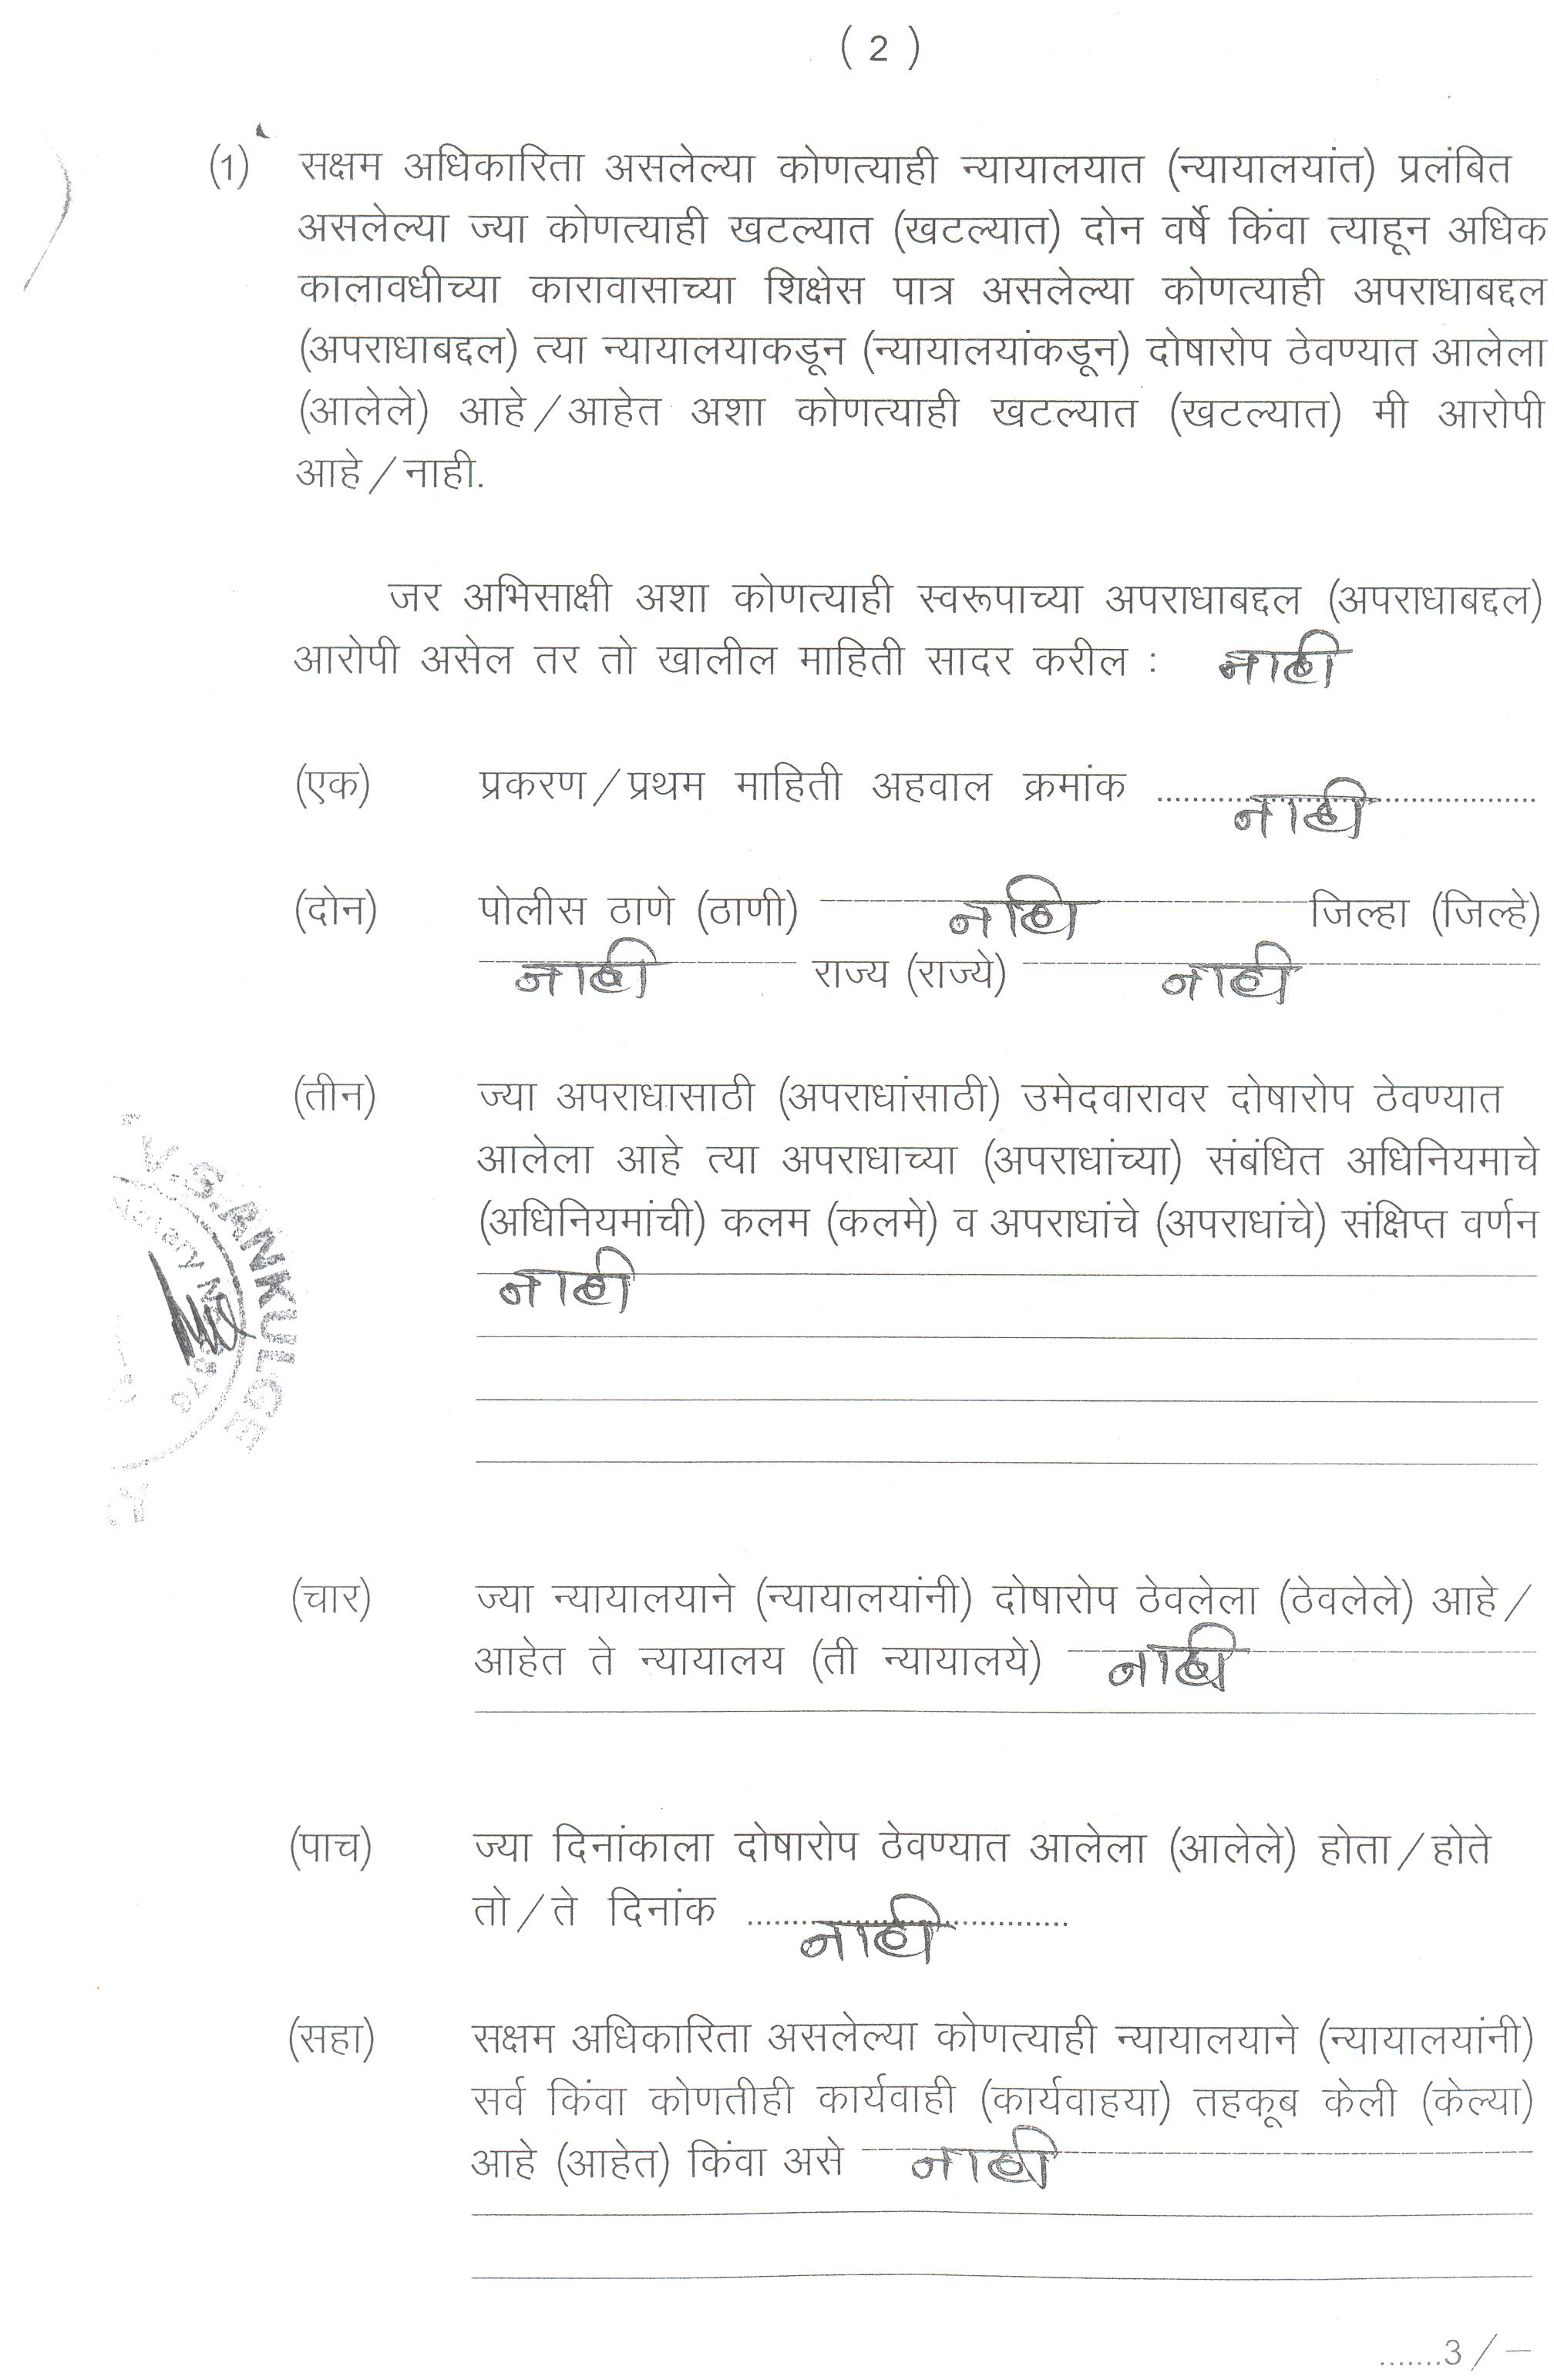 ( 2 )
(1) सक्षम अधिकारिता असलेल्या कोणत्याही न्यायालयात (न्यायालयांत) प्रलंबित
असलेल्या ज्या कोणत्याही खटल्यात (खटल्यात) दोन वर्षे किंवा त्याहून अधिक
कालावधीच्या कारावासाच्या शिक्षेस पात्र असलेल्या कोणत्याही अपराधाबद्दल
(अपराधाबद्दल) त्या न्यायालयाकडून (न्यायालयांकडून) दोषारोप ठेवण्यात आलेला
(आलेले) आहे/आहेत अशा कोणत्याही खटल्यात (खटल्यात) मी आरोपी
आहे/नाही.
जर अभिसाक्षी अशा कोणत्याही स्वरूपाच्या अपराधाबद्दल (अपराधाबद्दल)
आरोपी असेल तर तो खालील माहिती सादर करील : नाही
(एक) प्रकरण/प्रथम माहिती अहवाल क्रमांक नाही
(दोन) पोलीस ठाणे (ठाणी) नाही जिल्हा (जिल्हे)
नाही राज्य (राज्ये) नाही
(तीन) ज्या अपराधासाठी (अपराधांसाठी) उमेदवारावर दोषारोप ठेवण्यात
आलेला आहे त्या अपराधाच्या (अपराधांच्या) संबंधित अधिनियमाचे
(अधिनियमांची) कलम (कलमे) व अपराधांचे (अपराधांचे) संक्षिप्त वर्णन
नाही
V.G.ANKULGE
Notary
(चार) ज्या न्यायालयाने (न्यायालयांनी) दोषारोप ठेवलेला (ठेवलेले) आहे/
आहेत ते न्यायालय (ती न्यायालये) नाही
(पाच) ज्या दिनांकाला दोषारोप ठेवण्यात आलेला (आलेले) होता/होते
तो/ते दिनांक नाही
(सहा) सक्षम अधिकारिता असलेल्या कोणत्याही न्यायालयाने (न्यायालयांनी)
सर्व किंवा कोणतीही कार्यवाही (कार्यवाहया) तहकूब केली (केल्या)
आहे (आहेत) किंवा असे नाही
.......3/-